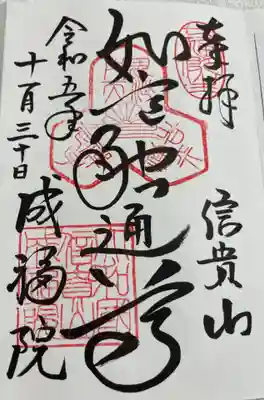 奉拝
信貴山
如意融通尊
令和五年
十月三十日
成福院